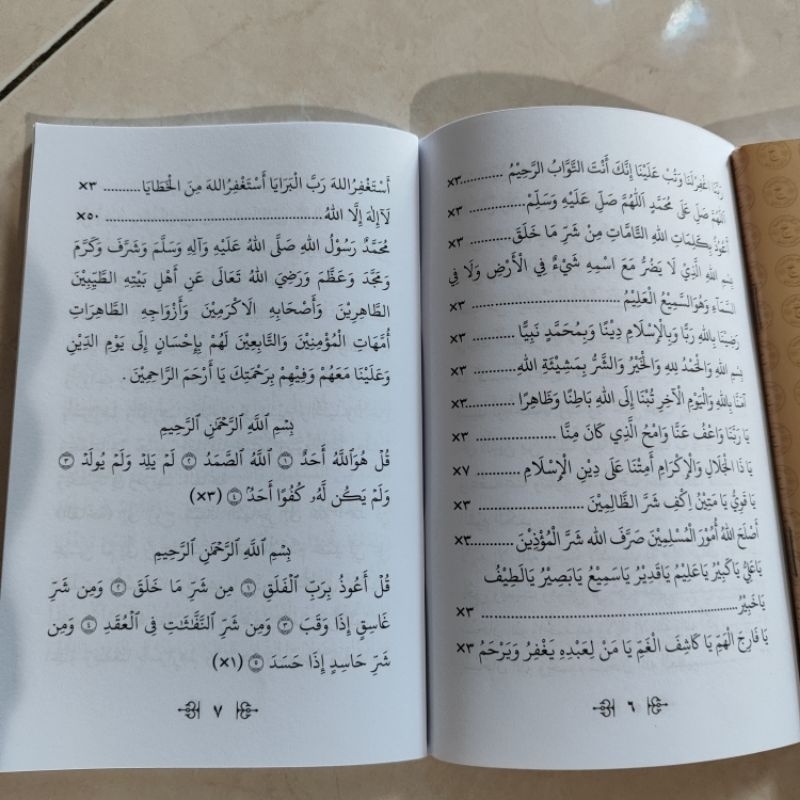 رَبَّنَا اغْفِرْلَنَا وَتُبْ عَلَيْنَا إِنَّكَ أَنْتَ التَّوَّابُ الرَّحِيْمُ ...........×٣
اَللّٰهُمَّ صَلِّ عَلَى مُحَمَّدٍ اَللّٰهُمَّ صَلِّ عَلَيْهِ وَسَلِّمْ ........... ×٣
أَعُوْذُ بِكَلِمَاتِ اللهِ التَّامَّاتِ مِنْ شَرِّ مَا خَلَقَ ............ ×٣
بِسْمِ اللهِ الَّذِيْ لَا يَضُرُّ مَعَ اسْمِهِ شَيْءٌ فِي الْأَرْضِ وَلَا فِي
السَّمَآءِ وَهُوَالسَّمِيْعُ الْعَلِيْمُ ........................ ×٣
رَضِيْنَا بِاللهِ رَبًّا وَبِالْإِسْلَامِ دِيْنًا وَبِمُحَمَّدٍ نَبِيًّا ............ ×٣
بِسْمِ اللهِ وَالْحَمْدُ لِلهِ وَالْخَيْرُ وَالشَّرُّ بِمَشِيْئَةِ اللهِ............ ×٣
آمَنَّا بِاللهِ وَالْيَوْمِ الْآخِرِ تُبْنَا إِلَى اللهِ بَاطِنًا وَظَاهِرًا ............×٣
يَا رَبَّنَا وَاعْفُ عَنَّا وَامْحُ الَّذِيْ كَانَ مِنَّا ................ ×٣
يَا ذَا الْجَلَالِ وَالْإِكْرَامِ أَمِتْنَا عَلَى دِيْنِ الْإِسْلَامِ ............ ×٧
يَا قَوِيُّ يَا مَتِيْنُ اِكْفِ شَرَّ الظَّالِمِيْنَ .................. ×٣
أَصْلَحَ اللهُ أُمُوْرَ الْمُسْلِمِيْنَ صَرَّفَ الله شَرَّ الْمُؤْذِيْنَ ............×٣
يَاعَلِيُّ يَاكَبِيْرُ يَاعَلِيْمُ يَاقَدِيْرُ يَاسَمِيْعُ يَابَصِيْرُ يَالَطِيْفُ
يَاخَبِيْرُ.................................... ×٣
يَا فَارِجَ الْهَمِّ يَا كَاشِفَ الْغَمِّ يَا مَنْ لِعَبْدِهِ يَغْفِرُ وَيَرْحَمُ ×٣
٦
أَسْتَغْفِرُاللهَ رَبَّ الْبَرَايَا أَسْتَغْفِرُاللهَ مِنَ الْخَطَايَا.......... ×٣
لَآإِلٰهَ إِلَّا اللهُ.................................... ×٥٠
مُحَمَّدٌ رَسُوْلُ اللهِ صَلَّى اللهُ عَلَيْهِ وَآلِهِ وَسَلَّمَ وَشَرَّفَ وَكَرَّمَ
وَمَجَّدَ وَعَظَّمَ وَرَضِيَ اللهُ تَعَالَى عَنِ أَهْلِ بَيْتِهِ الطَّيِّبِيْنَ
الطَّاهِرِيْنَ وَأَصْحَابِهِ الْاكْرَمِيْنَ وَأَزْوَاجِهِ الطَّاهِرَاتِ
أُمَّهَاتِ الْمُؤْمِنِيْنَ وَالتَّابِعِيْنَ لَهُمْ بِإِحْسَانٍ إِلَى يَوْمِ الدِّيْنِ
وَعَلَيْنَا مَعَهُمْ وَفِيْهِمْ بِرَحْمَتِكَ يَا أَرْحَمَ الرَّاحِمِيْنَ .
بِسْمِ ٱللَّهِ ٱلرَّحْمَٰنِ ٱلرَّحِيمِ
قُلْ هُوَٱللَّهُ أَحَدٌ ۝١ ٱللَّهُ ٱلصَّمَدُ ۝٢ لَمْ يَلِدْ وَلَمْ يُولَدْ ۝٣
وَلَمْ يَكُن لَّهُۥ كُفُوًا أَحَدٌۢ ۝٤ (×٣)
بِسْمِ ٱللَّهِ ٱلرَّحْمَٰنِ ٱلرَّحِيمِ
قُلْ أَعُوذُ بِرَبِّ ٱلْفَلَقِ ۝١ مِن شَرِّ مَا خَلَقَ ۝٢ وَمِن شَرِّ
غَاسِقٍ إِذَا وَقَبَ ۝٣ وَمِن شَرِّ ٱلنَّفَّٰثَٰتِ فِى ٱلْعُقَدِ ۝٤ وَمِن
شَرِّ حَاسِدٍ إِذَا حَسَدَ ۝٥ (×١)
٧